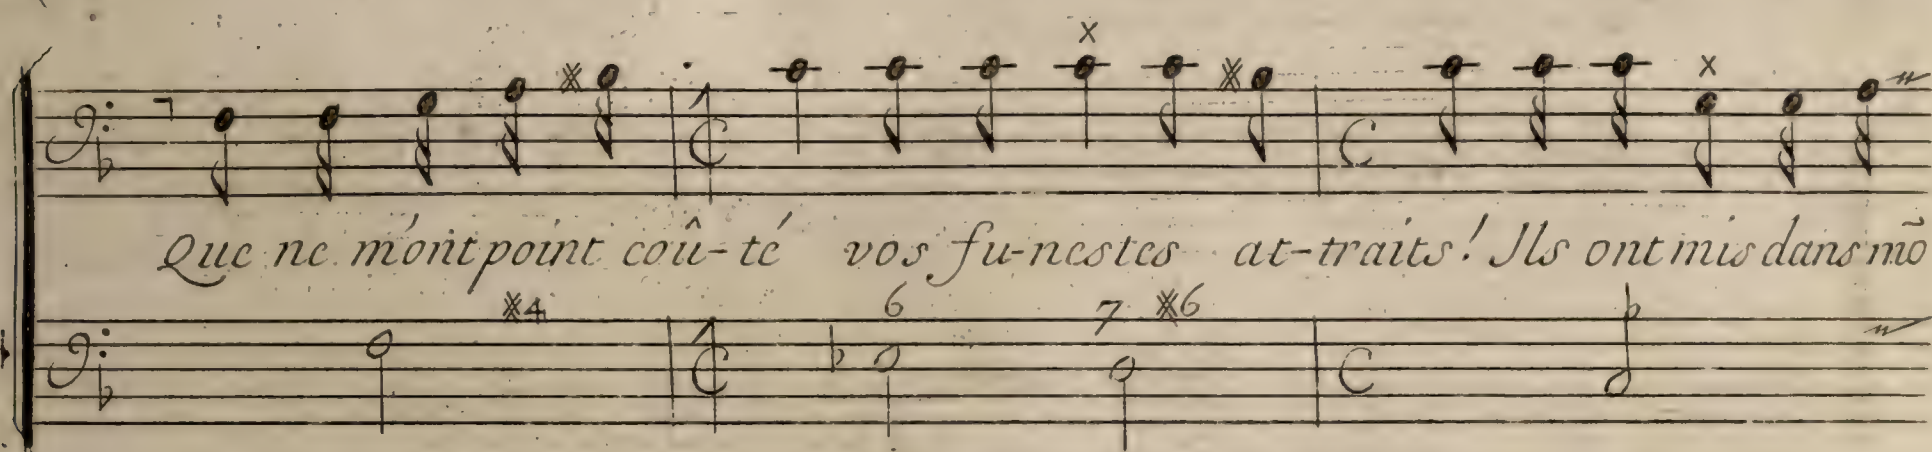 Que ne m'ont point coû-té vos fu-nestes at-traits! Ils ont mis dans mõ
※4 6 7 ※6 ♭